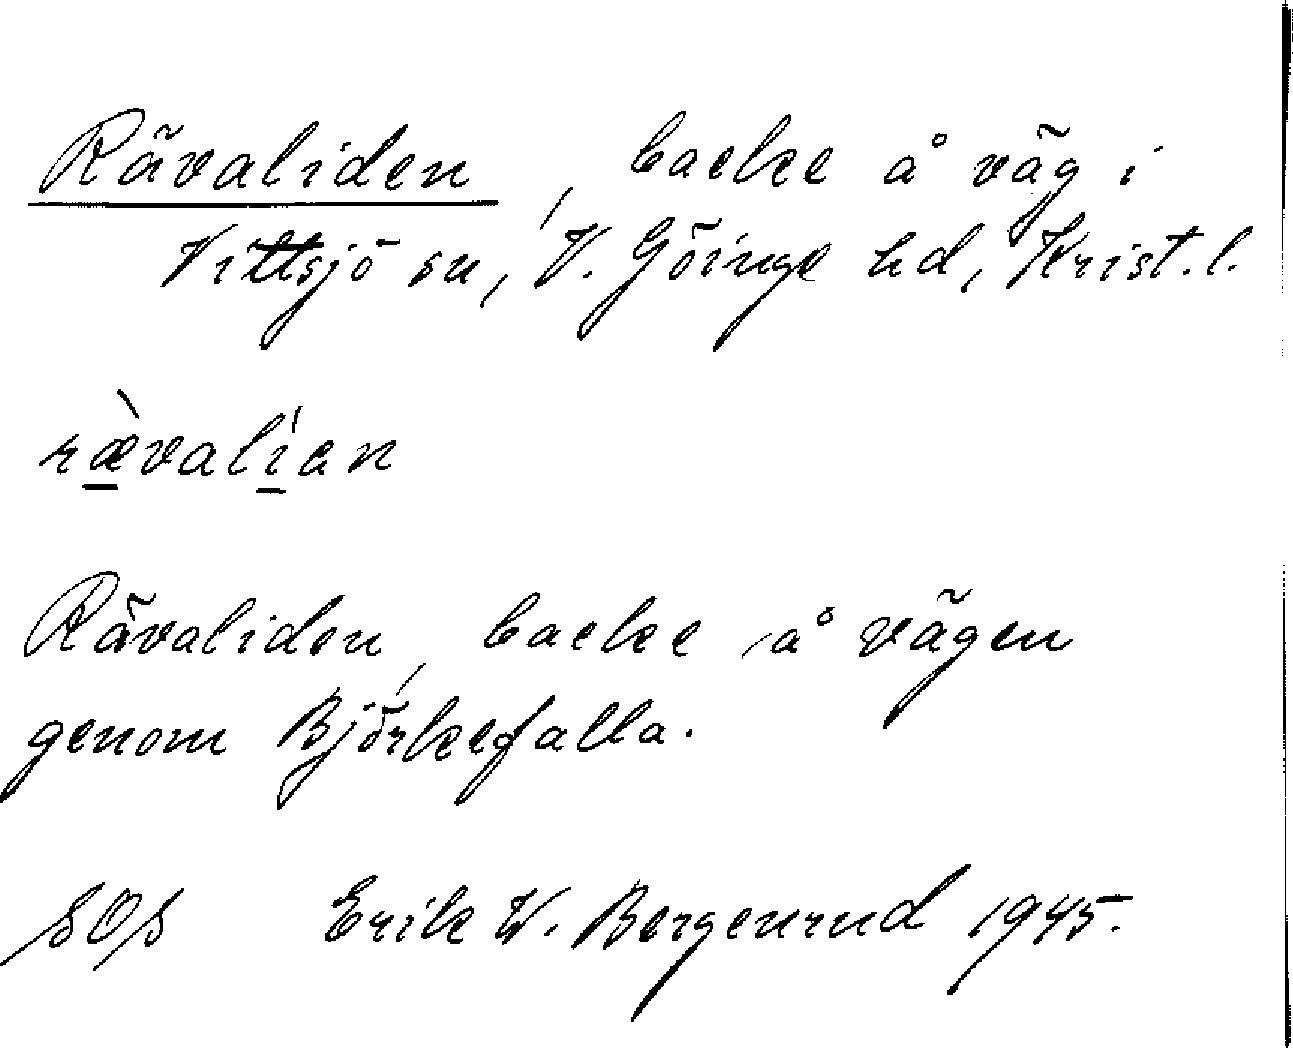 Rävaliden, backe å väg i
Vittsjö sn, V. Göinge hd, Krist. l.
rævalían
Rävaliden, backe å vägen
genom Björkefalla.
SOS Erik W. Bergenrud 1945.